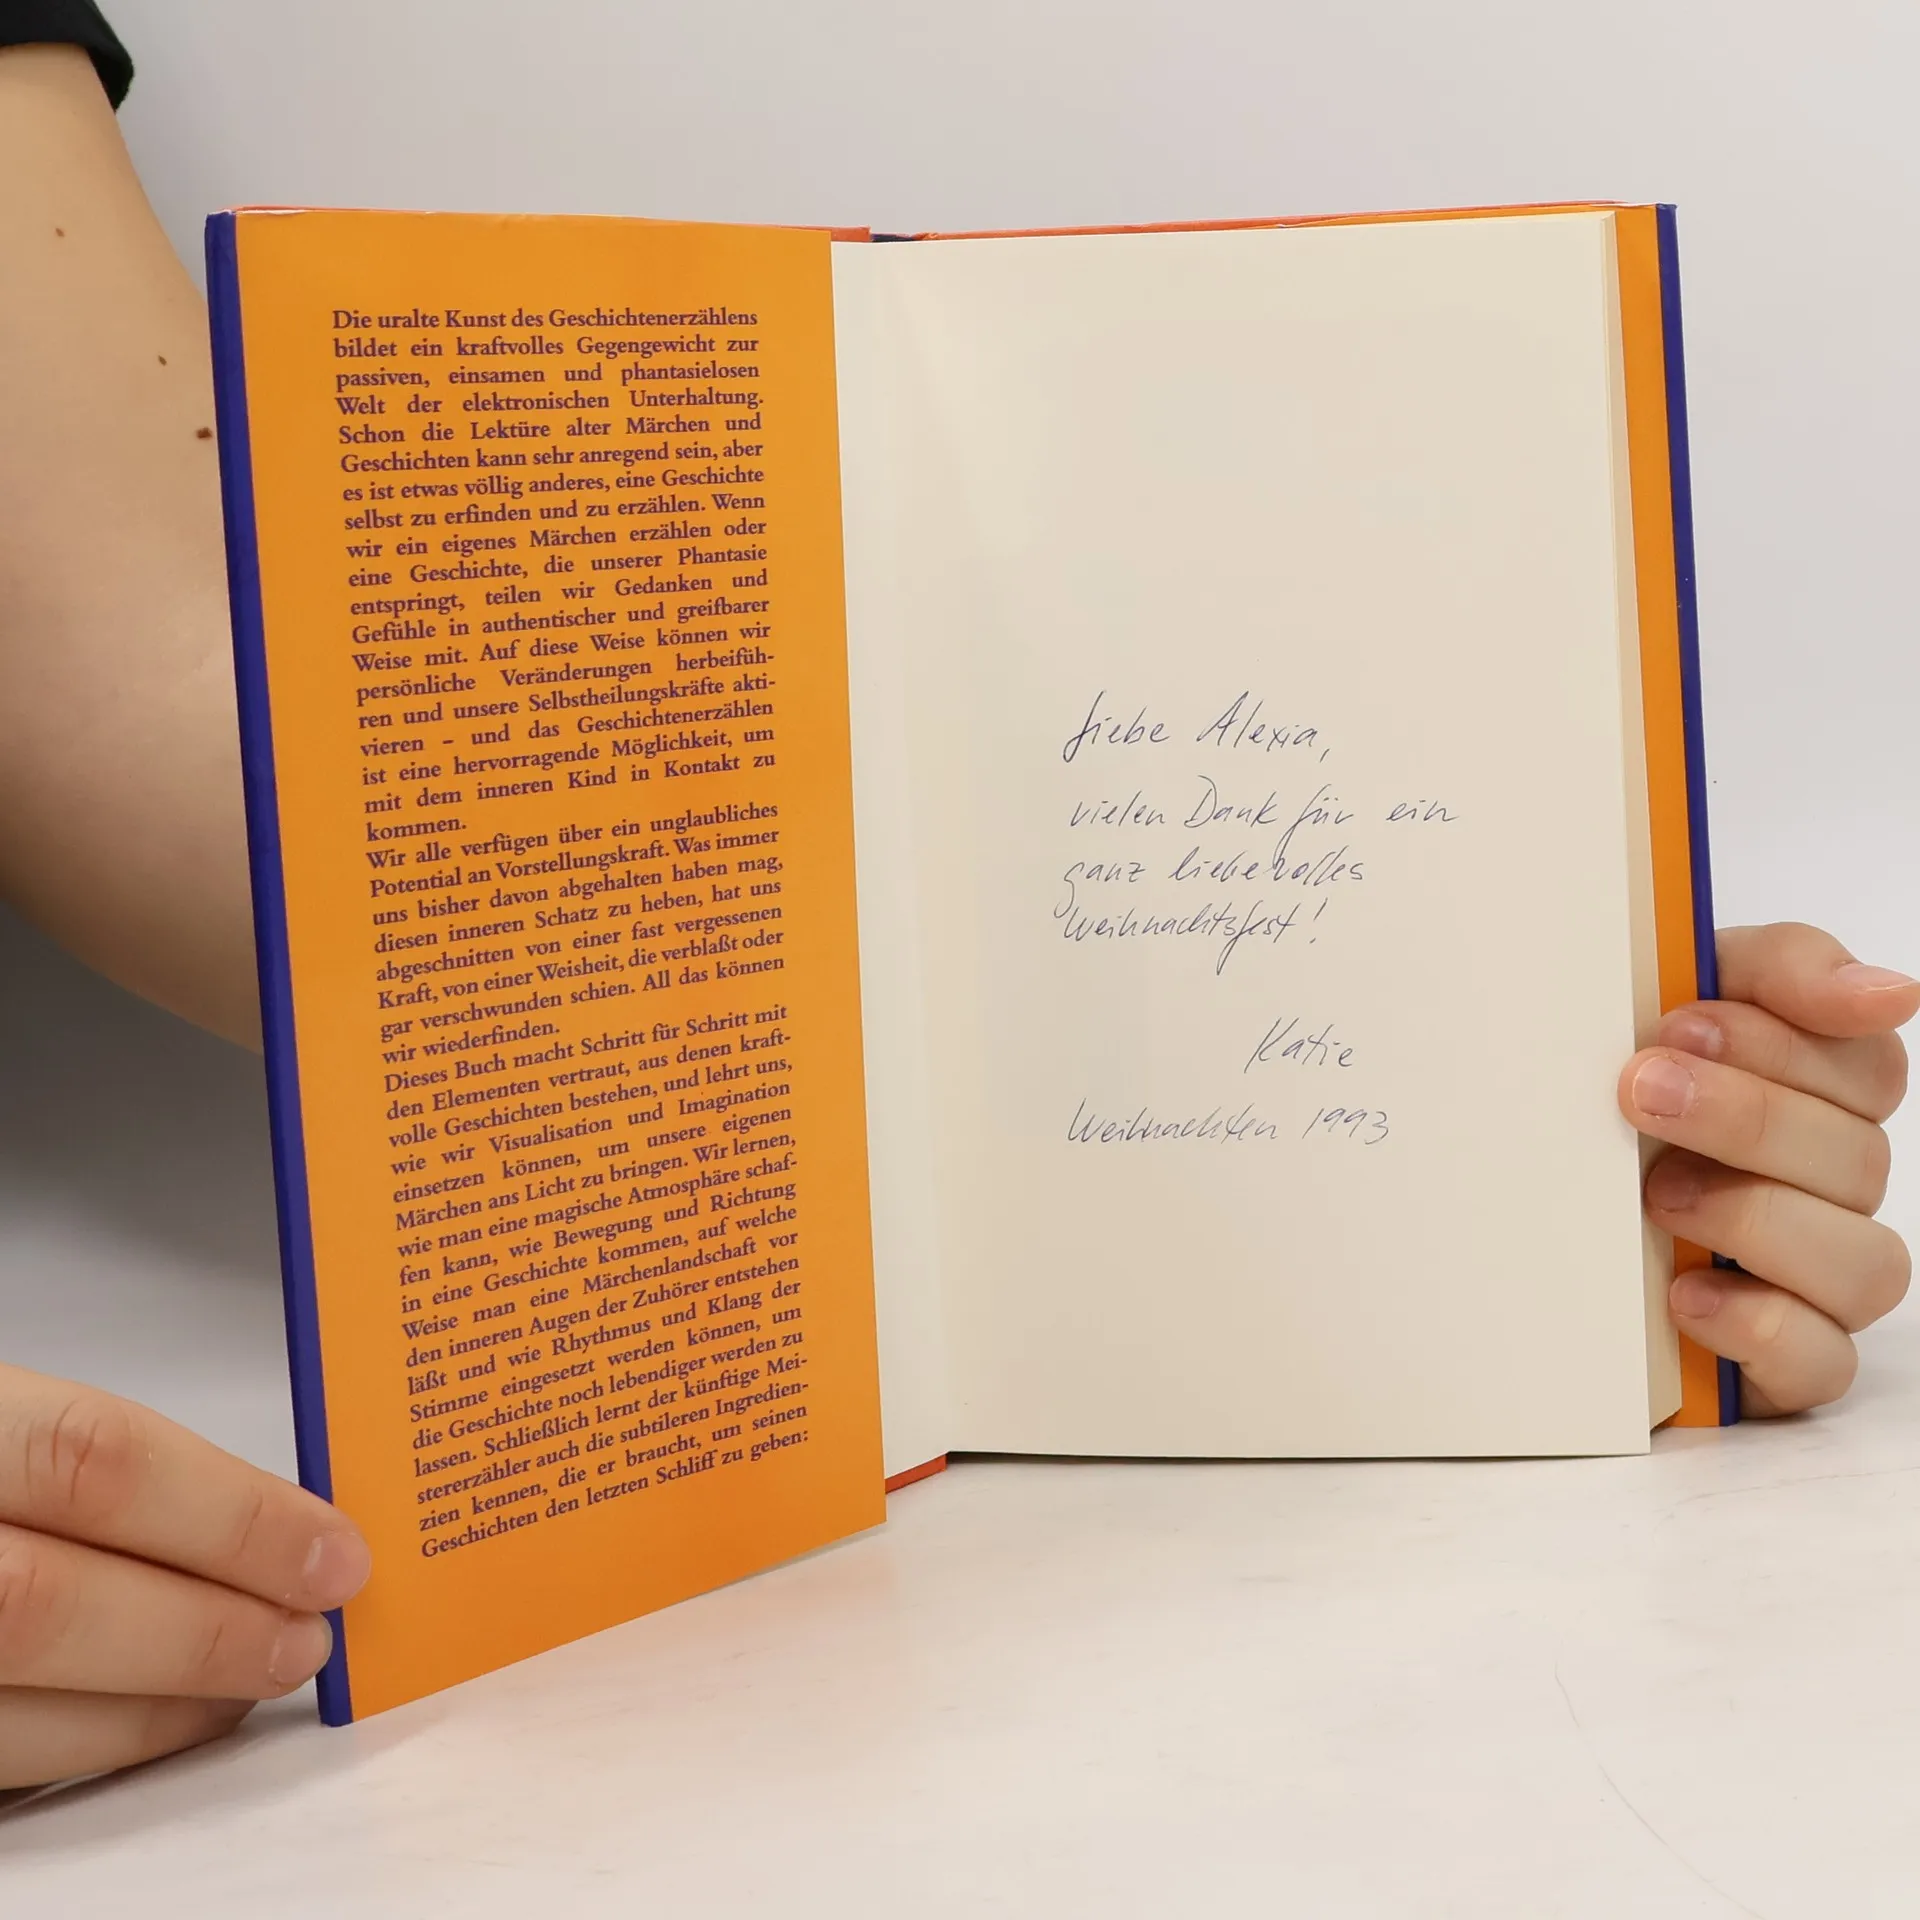 Die uralte Kunst des Geschichtenerzählens
bildet ein kraftvolles Gegengewicht zur
passiven, einsamen und phantasielosen
Welt der elektronischen Unterhaltung.
Schon die Lektüre alter Märchen und
Geschichten kann sehr anregend sein, aber
es ist etwas völlig anderes, eine Geschichte
selbst zu erfinden und zu erzählen. Wenn
wir ein eigenes Märchen erzählen oder
eine Geschichte, die unserer Phantasie
entspringt, teilen wir Gedanken und
Gefühle in authentischer und greifbarer
Weise mit. Auf diese Weise können wir
persönliche Veränderungen herbeifüh-
ren und unsere Selbstheilungskräfte akti-
vieren – und das Geschichtenerzählen
ist eine hervorragende Möglichkeit, um
mit dem inneren Kind in Kontakt zu
kommen.
Wir alle verfügen über ein unglaubliches
Potential an Vorstellungskraft. Was immer
uns bisher davon abgehalten haben mag,
diesen inneren Schatz zu heben, hat uns
abgeschnitten von einer fast vergessenen
Kraft, von einer Weisheit, die verblaßt oder
gar verschwunden schien. All das können
wir wiederfinden.
Dieses Buch macht Schritt für Schritt mit
den Elementen vertraut, aus denen kraft-
volle Geschichten bestehen, und lehrt uns,
wie wir Visualisation und Imagination
einsetzen können, um unsere eigenen
Märchen ans Licht zu bringen. Wir lernen,
wie man eine magische Atmosphäre schaf-
fen kann, wie Bewegung und Richtung
in eine Geschichte kommen, auf welche
Weise man eine Märchenlandschaft vor
den inneren Augen der Zuhörer entstehen
läßt und wie Rhythmus und Klang der
Stimme eingesetzt werden können, um
die Geschichte noch lebendiger werden zu
lassen. Schließlich lernt der künftige Mei-
stererzähler auch die subtileren Ingredien-
zien kennen, die er braucht, um seinen
Geschichten den letzten Schliff zu geben:
Liebe Alexia,
vielen Dank für ein
ganz liebevolles
Weihnachtsfest!
Katie
Weihnachten 1993